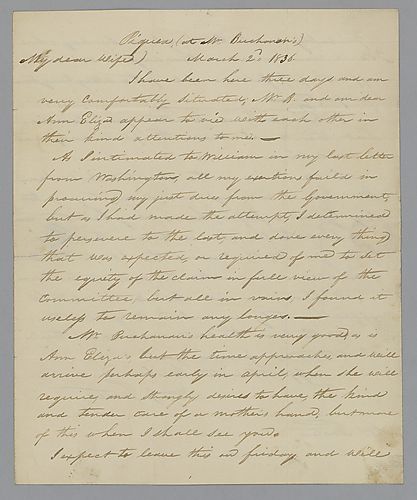 Piquea, (at Mr Buchanan's)
My dear Wife) March 2d 1836
I have been here three days and am
very comfortably situated, Mr B. and our dear
Ann Eliza appear to vie with each other in
their kind attentions to me. —
As I intimated to William in my last letter
from Washington, all my exertions faild in
procuring my just dues from the Government,
but as I had made the attempt, I determined
to persevere to the last, and done every thing
that was expected, or required of me to set
the equity of the claim in full view of the
Committee, but all in vain, I found it
useless to remain any longer. —
Mr Buchanan's health is very good, as is
Ann Eliza's but the time approaches, and will
arrive perhaps early in April, when she will
require, and strongly desires to have, the kind
and tender care of a mothers hand, but more
of this when I shall see you.
I expect to leave this on friday and will